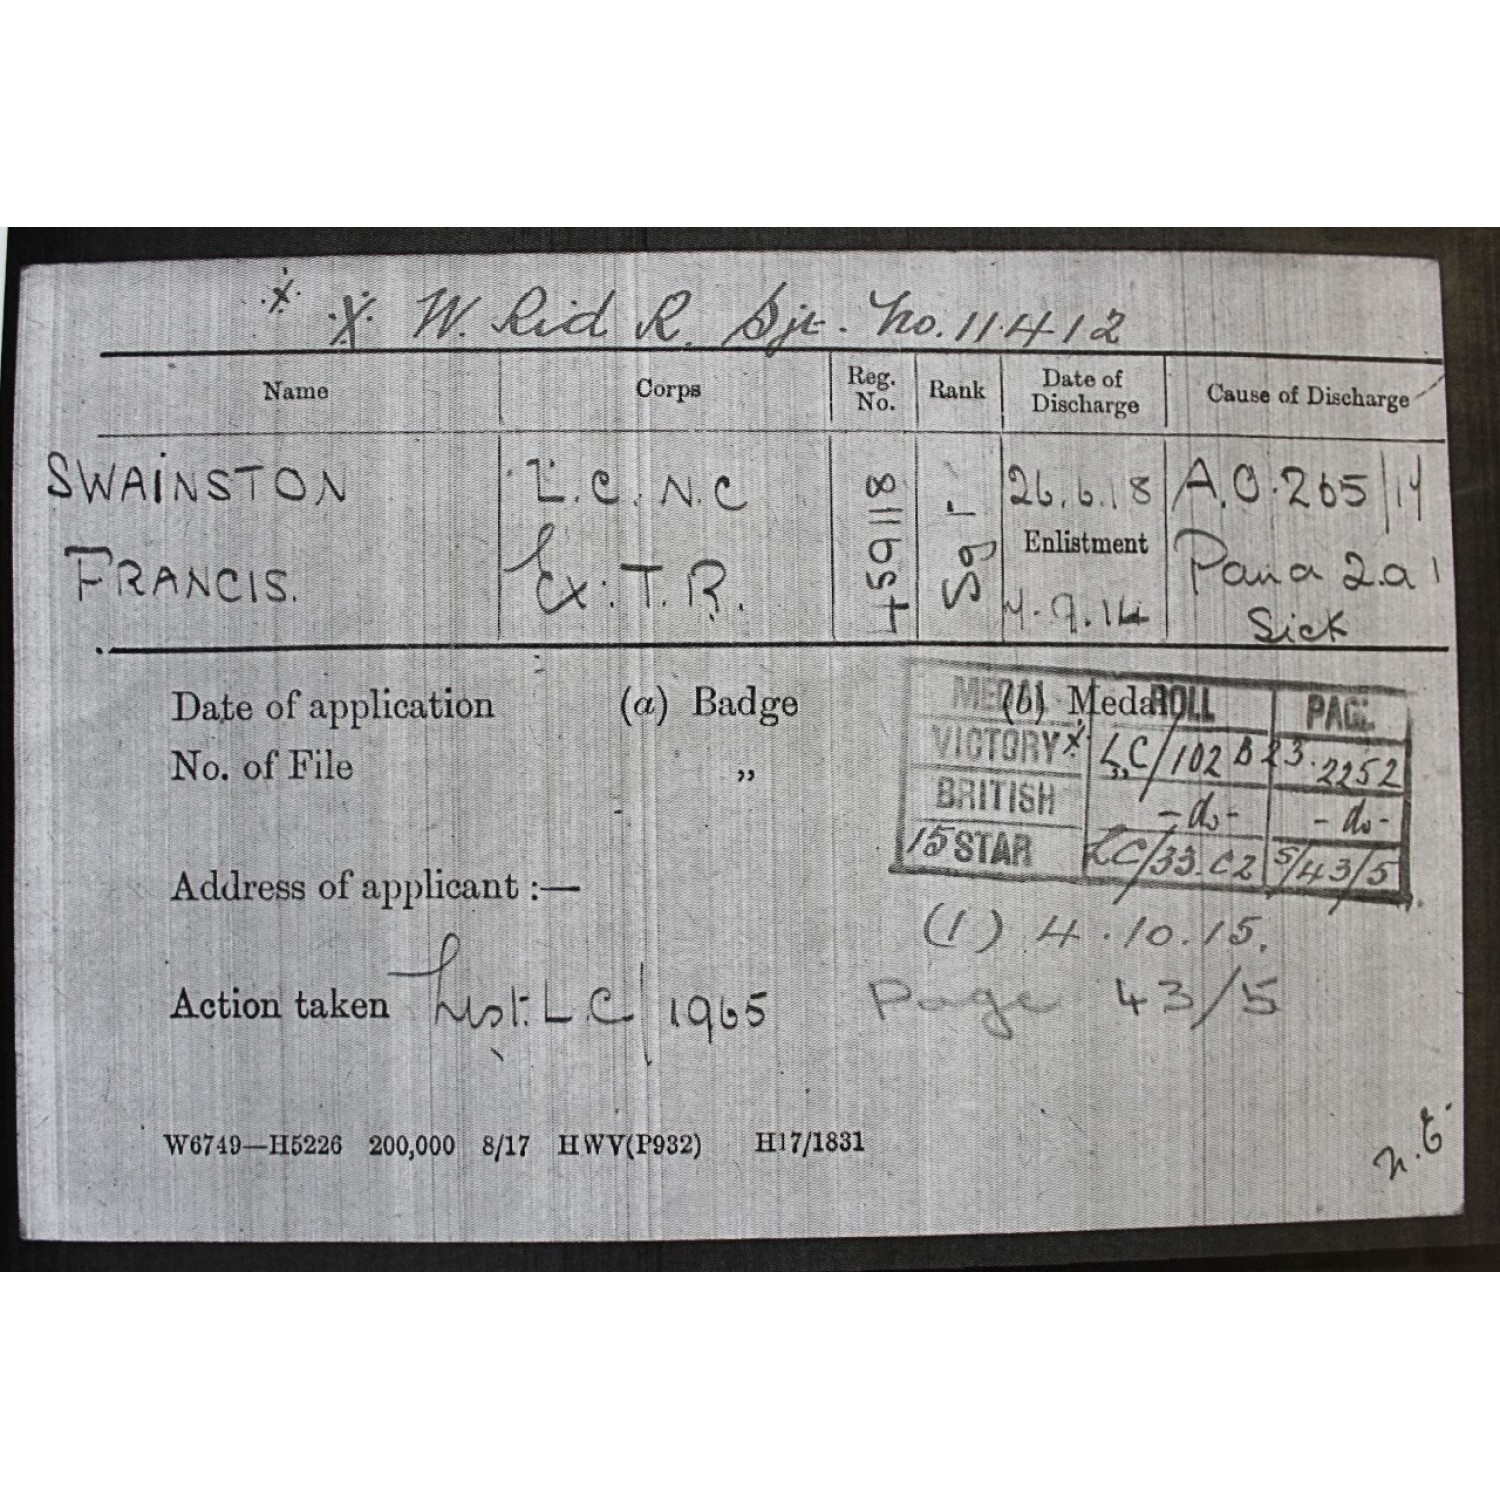 X X W. Rid R. Sjt. No. 11412
Name Corps Reg. No. Rank Date of Discharge Cause of Discharge
SWAINSTON L.C. N.C 459118 Sgt 26.6.18 A.O. 265/17
Enlistment
FRANCIS. Ex: T.R. 7.9.14 Para 2.a 1
Sick
Date of application (a) Badge (b) Medal
MEDAL ROLL PAGE
No. of File „
VICTORY X LC/102 B23. 2252
BRITISH -do- -do-
15 STAR LC/33.C2 5/43/5
Address of applicant :—
(1) 4.10.15.
Action taken List: L.C/1965 Page 43/5
W6749—H5226 200,000 8/17 HWV(P932) H17/1831
n.E.